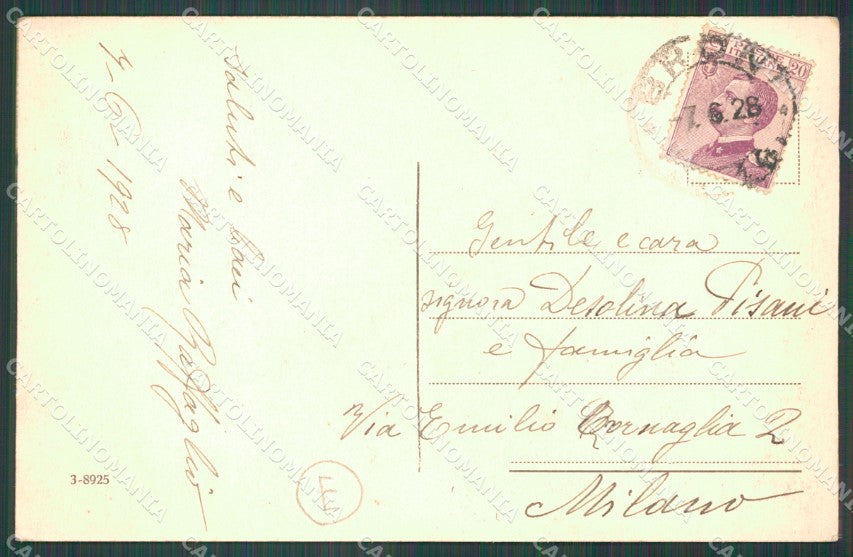 7-6-1928
Saluti e baci
Maria
3-8925
BRONI
-7.6.28
20
Gentile e cara
signora Desolina Pisani
e famiglia
Via Emilio Cornaglia 2
Milano
CARTOLINOMANIA